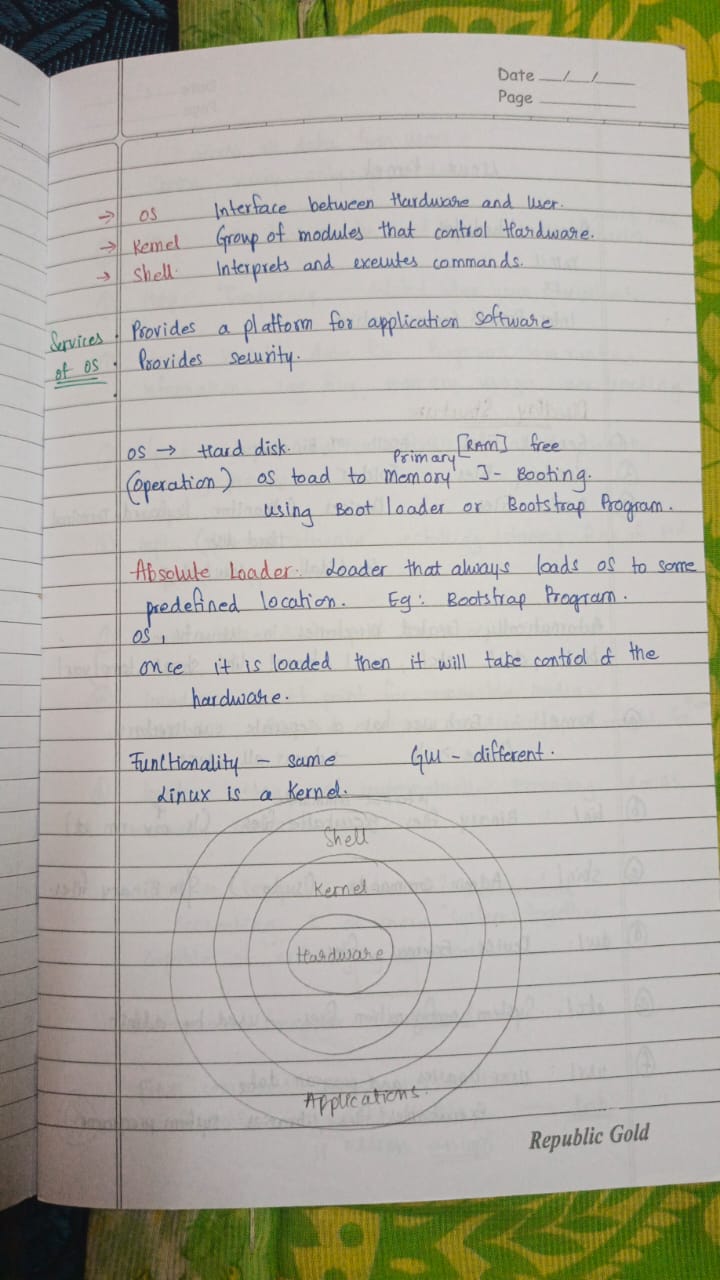 Date __/__/____
Page ________
→ OS Interface between Hardware and User.
→ Kernel Group of modules that control Hardware.
→ Shell. Interprets and executes commands.
Services of OS
• Provides a platform for application software
• Provides security.
•
OS → Hard disk. [RAM] free
(Operation) OS load to Primary Memory ]- Booting.
using Boot loader or Bootstrap Program.
Absolute Loader. Loader that always loads OS to some
predefined location. Eg: Bootstrap Program.
OS,
once it is loaded then it will take control of the
hardware.
Functionality - same GUI - different.
Linux is a Kernel.
Shell
Kernel
Hardware
Applications.
Republic Gold